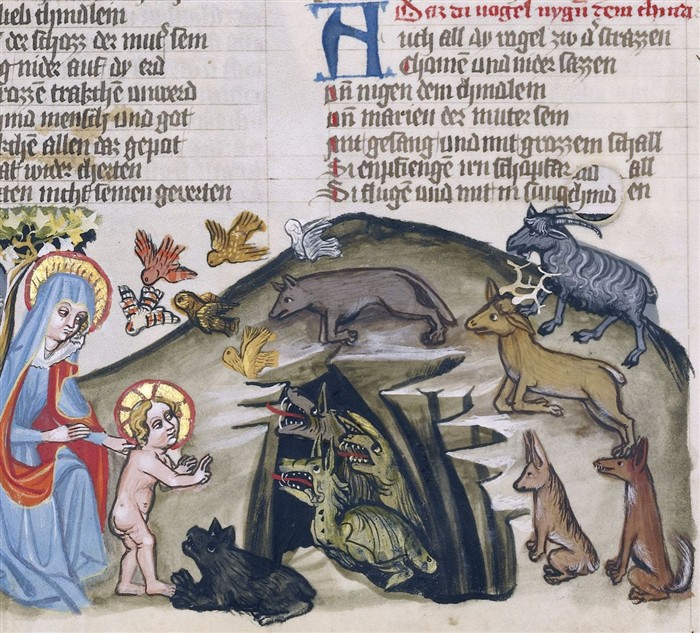 lieb chindlem
der schozz der mut͛ sem
g nider auf dy erd
rozzē trakchē unwerd
chind mensch und got
kchē allen das gepot
at wider cherten
ten nicht seinen geverten
Daz di vogel nygñ dem chind
Auch all dy vogel zw d͛ strazzen
Chomē und nider sazzen
uñ nigen dem chindlem
uñ marien der muter sem
mit gesang und mit grozzem schall
Si enpfiengē irn schophar all
Si flugen und mit in sungē